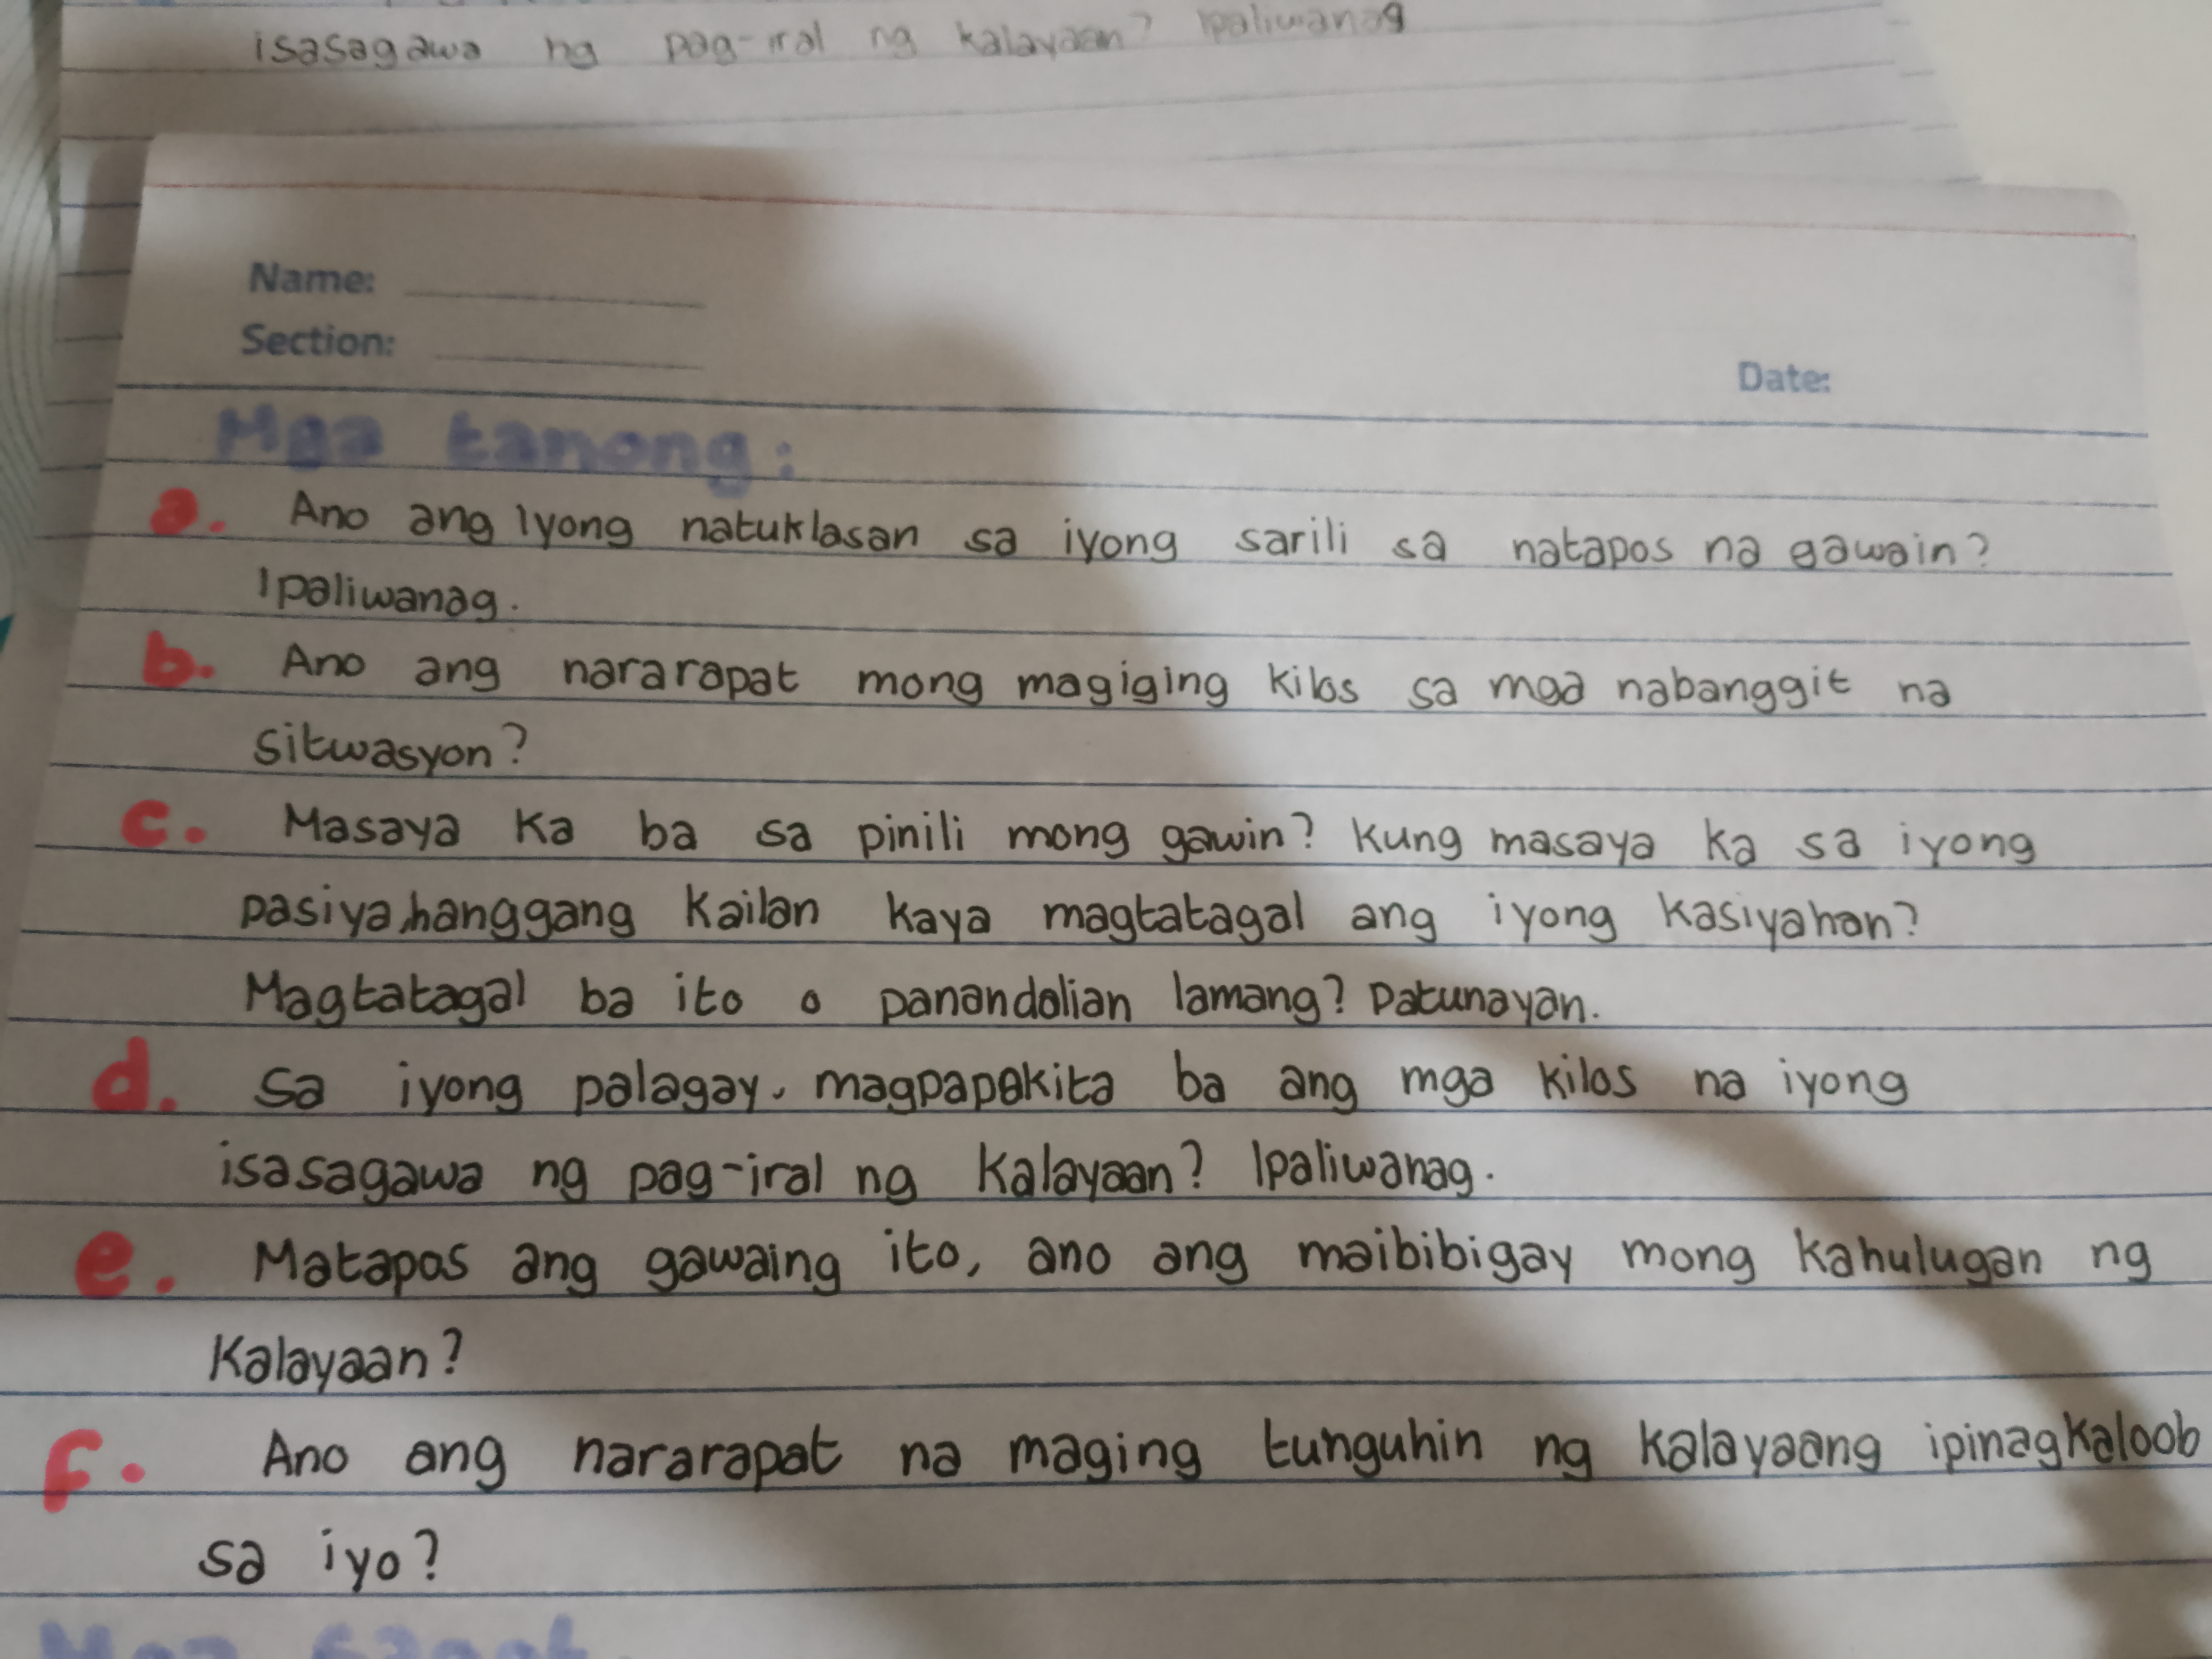 isasagawa ng pag-iral ng kalayaan? Ipaliwanag
Name:
Section:
Date:
Mga tanong:
a. Ano ang Iyong natuklasan sa iyong sarili sa natapos na gawain?
Ipaliwanag.
b. Ano ang nararapat mong magiging kilos sa mga nabanggit na
sitwasyon?
c. Masaya ka ba sa pinili mong gawin? Kung masaya ka sa iyong
pasiya,hanggang kailan kaya magtatagal ang iyong kasiyahan?
Magtatagal ba ito o panandalian lamang? Patunayan.
d. Sa iyong palagay, magpapakita ba ang mga kilos na iyong
isasagawa ng pag-iral ng kalayaan? Ipaliwanag.
e. Matapos ang gawaing ito, ano ang maibibigay mong kahulugan ng
Kalayaan?
f. Ano ang nararapat na maging tunguhin ng kalayaang ipinagkaloob
sa iyo?
Mga sagot